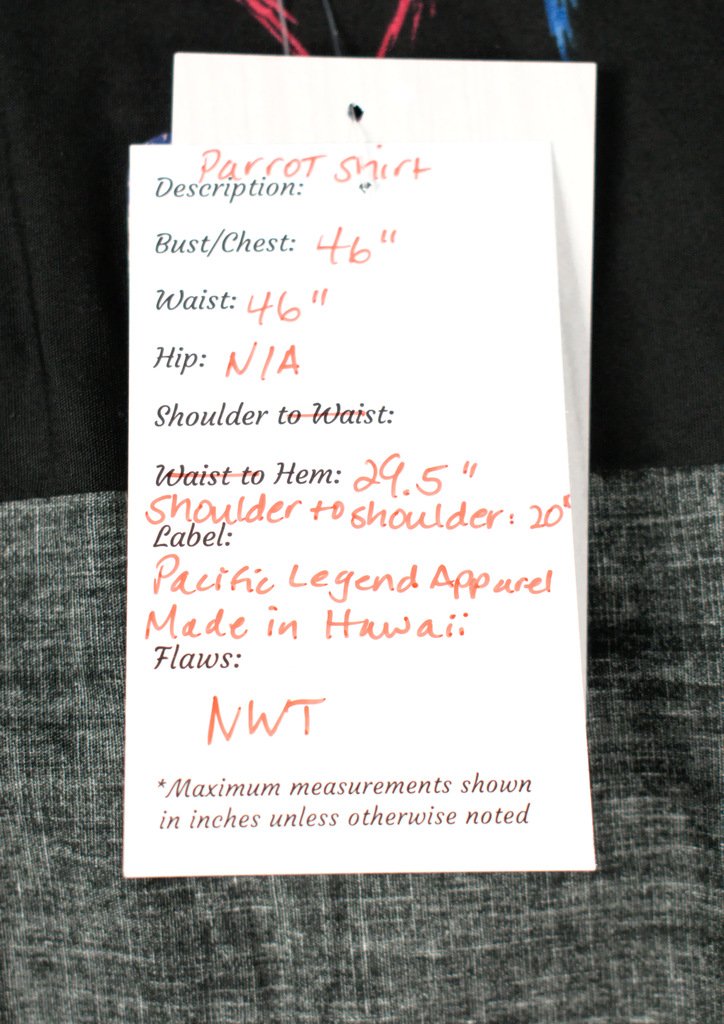 Parrot shirt
Description:
Bust/Chest: 46"
Waist: 46"
Hip: N/A
Shoulder to Waist:
Waist to Hem: 29.5"
Shoulder to shoulder: 20"
Label:
Pacific Legend Apparel
Made in Hawaii
Flaws:
NWT
*Maximum measurements shown
in inches unless otherwise noted